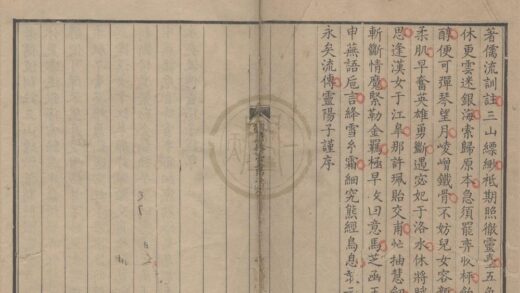 著儒流訓註三山縹緲祗期照徹靈
休更雲迷銀海索歸原本急須罷齊
醇便可彈琴望月崚嶒鐵骨不妨兒女容
柔肌早奮英雄勇斷遇宓妃于洛水休將
思逢漢女于江皋那許珮貽交甫忙抽慧
斬斷情魔緊勒金羈極早攵囘意馬芝函
申蕪語巵言絳雪玄霜細究熊經鳥息
永矣流傳靈陽子謹序